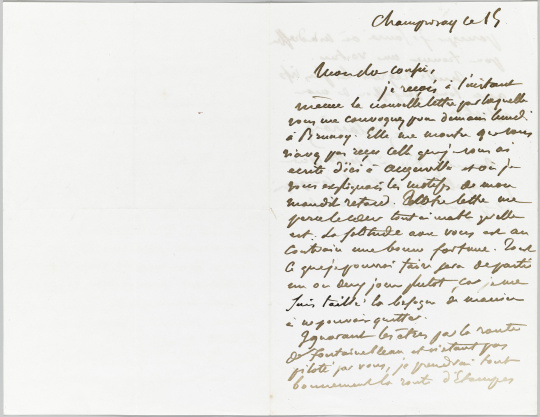 Champrosay ce 15
Mon cher cousin,
je reçois à l'instant
même la nouvelle lettre par laquelle
vous me convoquez pour demain lundi
à Brunoy. Elle me montre que vous
n'avez pas reçu celle que je vous ai
écrite d'ici à Augerville et où je
vous expliquais les motifs de mon
maudit retard. Votre lettre me
perce le cœur tout aimable qu'elle
est. La solitude avec vous est au
contraire une bonne fortune. Tout
ce que je pourrai faire sera de partir
un ou deux jours plutôt, car je me
suis taillé la besogne de manière
à ne pouvoir quitter.
Ignorant les êtres par la route
de Fontainebleau et n'étant pas
piloté par vous, je prendrai tout
bonnement la route d'Etampes